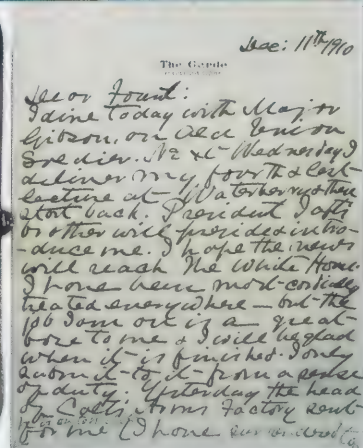 Dec: 11th/1910
The Garde
Dear Fount:
I dine today with Major
Gibson, an old Union
Soldier. Next Wednesday I
deliver my fourth & last
lecture at Waterbury & then
start back. President Taft's
brother will preside & intro-
-duce me. I hope the news
will reach The White Home
I have been most cordially
treated everywhere — but the
job I am on is a great
bore to me & I will be glad
when it is finished. I only
submit to it from a sense
of duty. Yesterday the head
of Colts Arms Factory sent
for me (I have